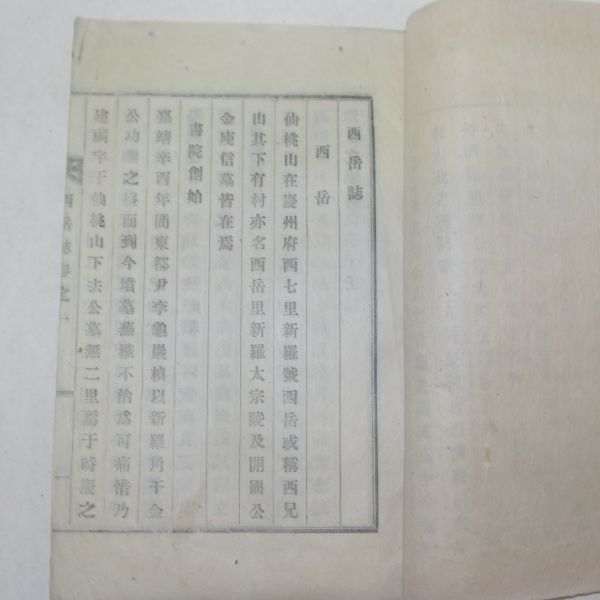 西岳誌
西岳
仙桃山在慶州府西七里新羅號西岳或稱西兄
山其下有村亦名西岳里新羅太宗陵及開國公
金庾信墓皆在焉
書院創始
嘉靖辛酉年間東都尹李龜巖楨以新羅角干金
公功之而到今墳墓蕪穢不治爲可痛惜乃
建廟宇于仙桃山下去公墓無二里焉于時慶之
西岳誌卷之一